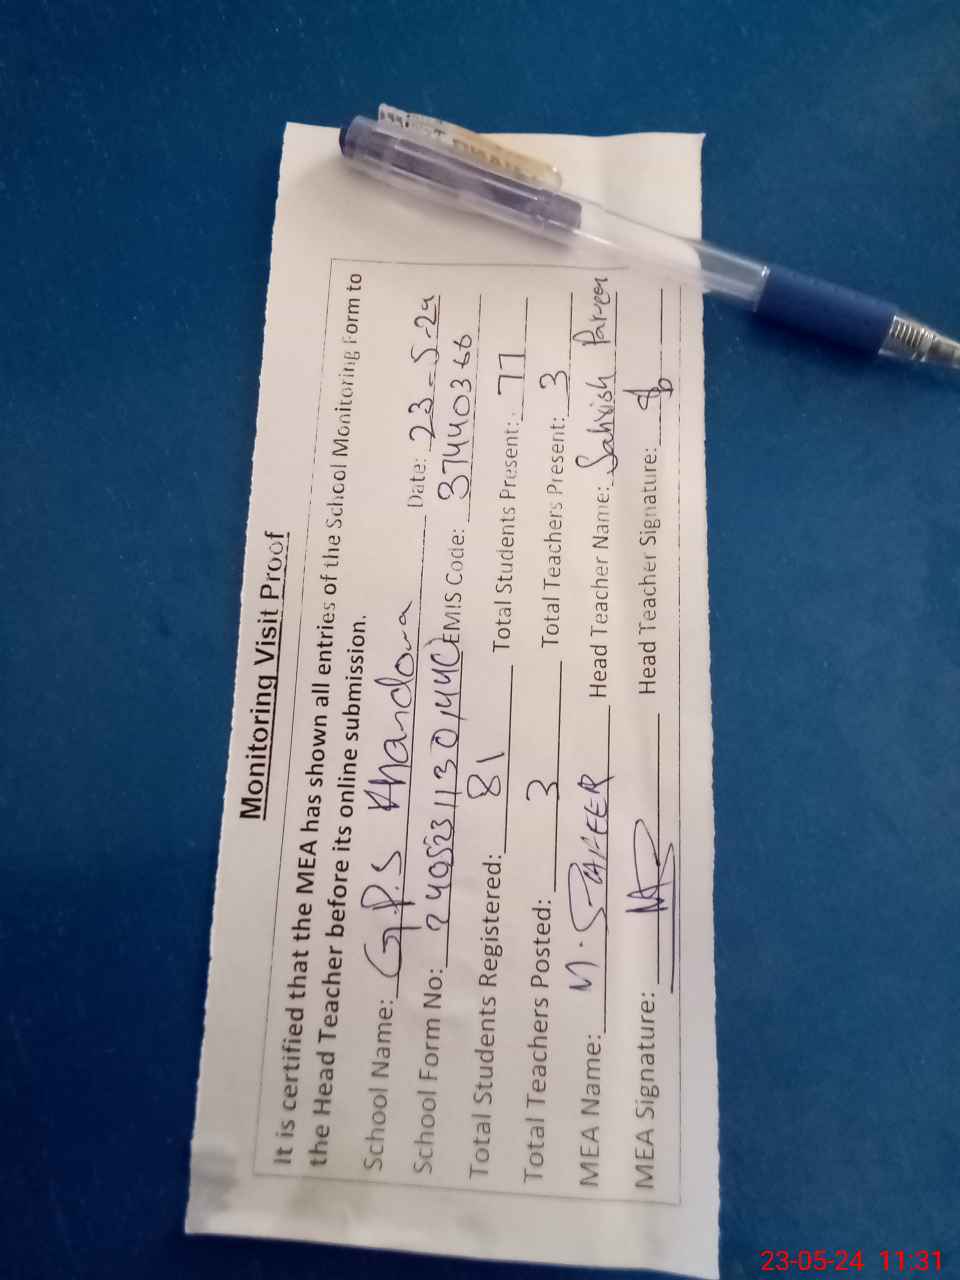 Monitoring Visit Proof
It is certified that the MEA has shown all entries of the School Monitoring Form to
the Head Teacher before its online submission.
School Name: G.P.S Khandowa Date: 23-5-24
School Form No: EMIS Code: 37440366
Total Students Registered: 81 Total Students Present: 77
Total Teachers Posted: 3 Total Teachers Present: 3
MEA Name: M. Head Teacher Name: Sahrish Parveen
MEA Signature: Head Teacher Signature:
23-05-24 11:31